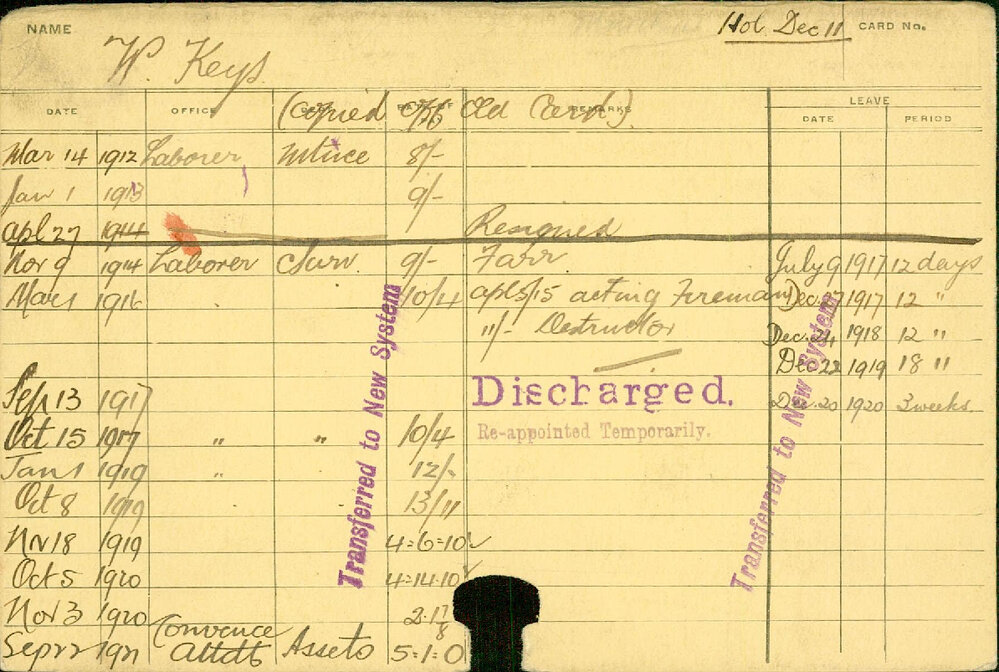 NAME W. Keys Hol. Dec 11 CARD No.
DATE OFFICE (Copied off Old Card). REMARKS LEAVE
DATE PERIOD
Mar 14 1912 Laborer Mtnce 8/-
Jan 1 1913 9/-
Apl 27 1914 Resigned
Nov 9 1914 Laborer Clsrv. 9/- Farr July 9 1917 12 days
Mar 1 1916 10/4 apl 5/15 acting Fireman Dec 27 1917 12 "
11/- Destructor Dec. 21, 1918 12 "
Dec 22 1919 18 "
Sep 13 1917 Discharged. Dec. 20 1920 3 weeks.
Oct 15 1917 " " 10/4 Re-appointed Temporarily.
Jan 1 1919 " 12/-
Oct 8 1919 13/11
Nv 18 1919 4=6=10
Oct 5 1920 4=14.10
Nov 3 1920
Sep 22 1921 Convence Attdt Assets 5:1:0
Transferred to New System
Transferred to New System